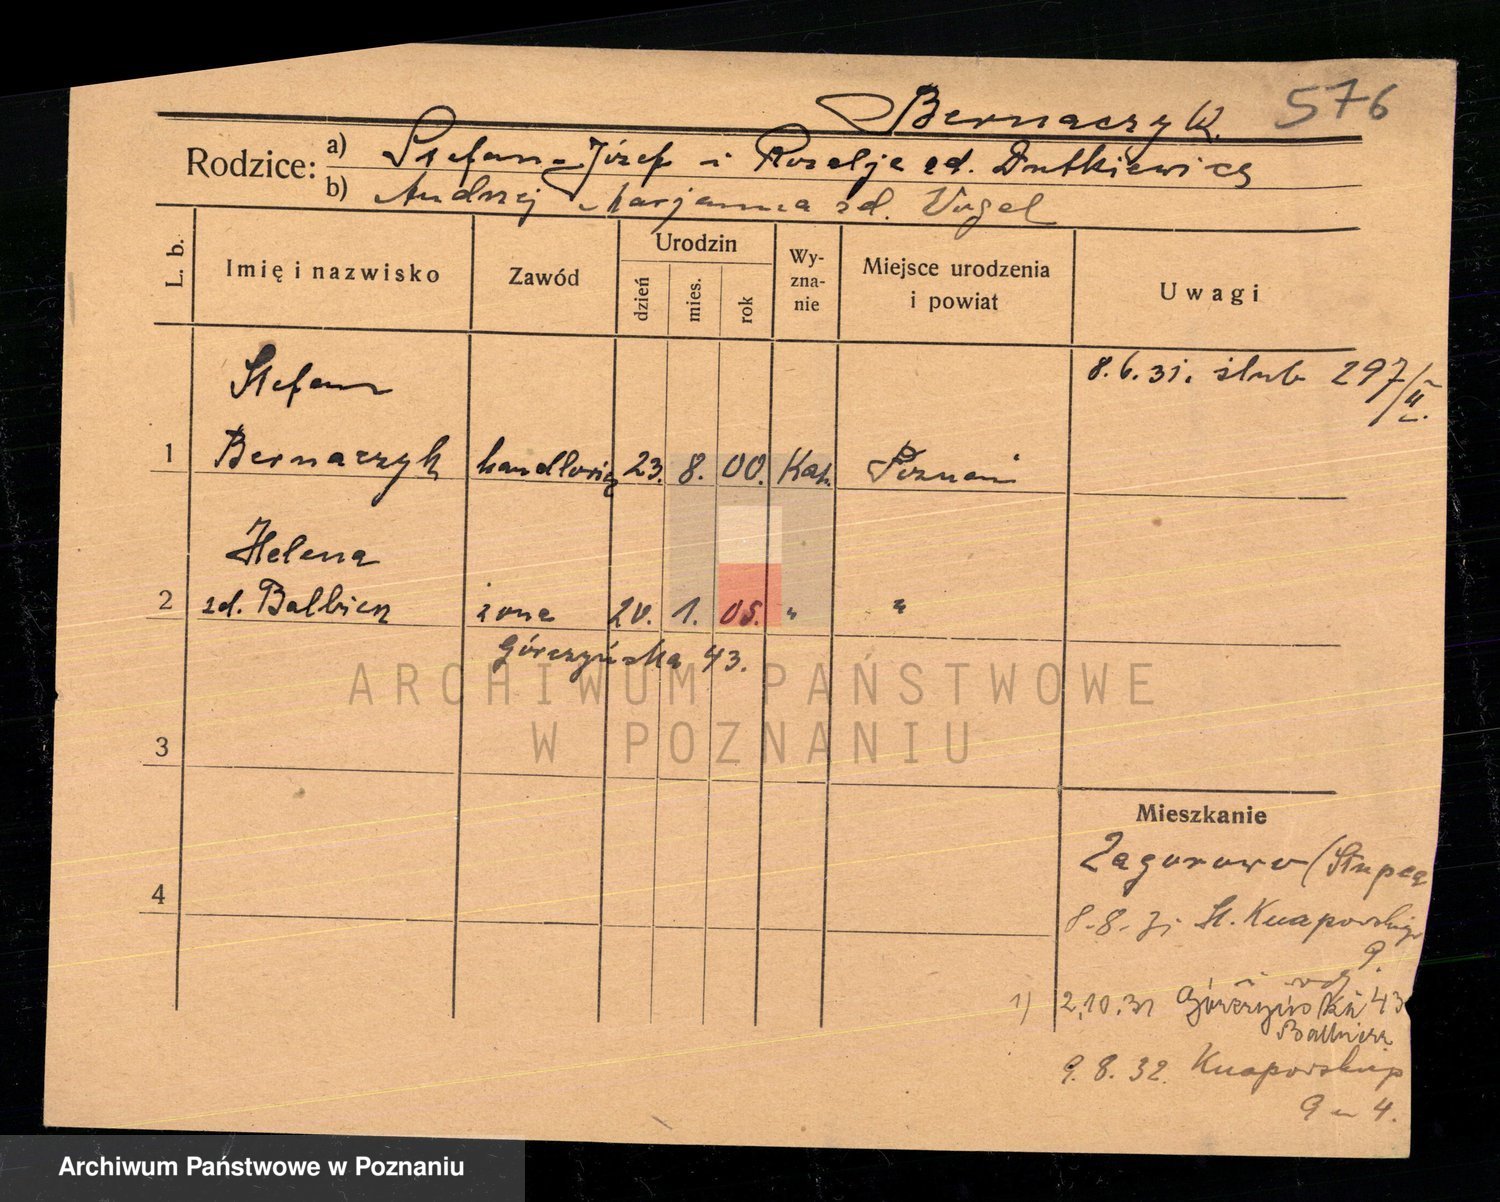 Bernaczyk. 576
Rodzice: a) Stefan-Józef i Rozalja zd. Dutkiewicz
b) Andrzej Marjanna zd. Vogel
L. b.
Imię i nazwisko
Zawód
Urodzin
dzień
mies.
rok
Wy-
zna-
nie
Miejsce urodzenia
i powiat
Uwagi
8.6.31. ślub 297/II.
Stefan
1 Bernaczyk handlowiec 23. 8. 00. Kat. Poznań
Helena
2 zd. Balbierz żona 20. 1. 05. " "
Górczyńska 43.
3
Mieszkanie
4
Zagorowo (Słupca
8.8.31 St. Knapowskiego
9.
1) 2.10.31 Górczyńska 43
Balbierz
9.8.32. Knapowskiego
9 m 4.
ARCHIWUM PAŃSTWOWE
W POZNANIU
Archiwum Państwowe w Poznaniu